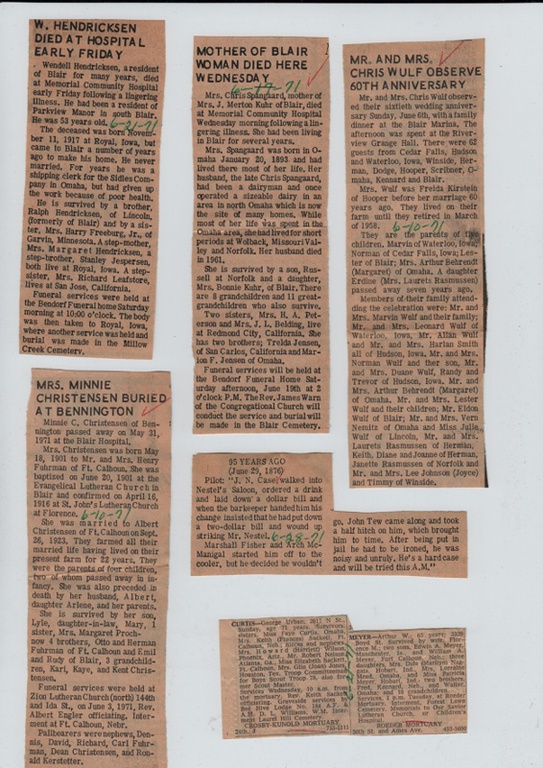 W. HENDRICKSEN
DIED AT HOSPITAL
EARLY FRIDAY
Wendell Hendricksen, a resident
of Blair for many years, died
at Memorial Community Hospital
early Friday following a lingering
illness. He had been a resident of
Parkview Manor in south Blair.
He was 53 years old. 6-21-71
The deceased was born Novem-
ber 11, 1917 at Royal, Iowa, but
came to Blair a number of years
ago to make his home. He never
married. For years he was a
shipping clerk for the Sidles Com-
pany in Omaha, but had given up
the work because of poor health.
He is survived by a brother,
Ralph Hendricksen, of Lincoln,
(formerly of Blair) and by a sis-
ter, Mrs. Harry Freeburg, Jr., of
Garvin, Minnesota. A step-mother,
Mrs. Margaret Hendricksen, a
step-brother, Stanley Jespersen,
both live at Royal, Iowa. A step-
sister, Mrs. Richard Leafstore,
lives at San Jose, California.
Funeral services were held at
the Bendorf Funeral home Saturday
morning at 10:00 o'clock. The body
was then taken to Royal, Iowa,
where another service was held and
burial was made in the Millow
Creek Cemetery.
MRS. MINNIE
CHRISTENSEN BURIED
AT BENNINGTON
Minnie C. Christensen of Ben-
nington passed away on May 31,
1971 at the Blair Hospital.
Mrs. Christensen was born May
18, 1901 to Mr. and Mrs. Henry
Fuhrman of Ft. Calhoun. She was
baptised on June 20, 1901 at the
Evangelical Lutheran Church in
Blair and confirmed on April 16,
1916 at St. John's Lutheran Church
at Florence. 6-10-71
She was married to Albert
Christensen of Ft. Calhoun on Sept.
26, 1923. They farmed all their
married life having lived on their
present farm for 22 years. They
were the parents of four children,
two of whom passed away in in-
fancy. She was also preceded in
death by her husband, Albert,
daughter Arlene, and her parents.
She is survived by her son,
Lyle, daughter-in-law, Mary, 1
sister, Mrs. Margaret Proch-
now 4 brothers, Otto and Herman
Fuhrman of Ft. Calhoun and Emil
and Rudy of Blair, 3 grandchild-
ren, Kari, Kaye, and Kent Chris-
tensen.
Funeral services were held at
Zion Lutheran Church (north) 144th
and Ida St., on June 3, 1971, Rev.
Albert Engler officiating. Inter-
ment at Ft. Calhoun, Nebr.
Pallbearers were nephews, Den-
nis, David, Richard, Carl Fuhr-
man, Dean Christensen, and Ron-
ald Kerstetter.
MOTHER OF BLAIR
WOMAN DIED HERE
WEDNESDAY
6-17-71
Mrs. Chris Spangaard, mother of
Mrs. J. Merton Kuhr of Blair, died
at Memorial Community Hospital
Wednesday morning following a lin-
gering illness. She had been living
in Blair for several years.
Mrs. Spangaard was born in O-
maha January 20, 1893 and had
lived there most of her life. Her
husband, the late Chris Spangaard,
had been a dairyman and once
operated a sizeable dairy in an
area in north Omaha which is now
the site of many homes. While
most of her life was spent in the
Omaha area, she had lived for short
periods at Wolback, Missouri Val-
ley and Norfolk. Her husband died
in 1961.
She is survived by a son, Rus-
sell at Norfolk and a daughter,
Mrs. Bonnie Kuhr, of Blair. There
are 8 grandchildren and 11 great-
grandchildren who also survive.
Two sisters, Mrs. H. A. Pet-
erson and Mrs. J. L. Belding, live
at Redmond City, California. She
has two brothers; Trelda Jensen,
of San Carlos, California and Mar-
ion F. Jensen of Omaha.
Funeral services will be held at
the Bendorf Funeral Home Sat-
urday afternoon, June 19th at 2
o'clock P.M. The Rev. James Warn
of the Congregational Church will
conduct the service and burial will
be made in the Blair Cemetery.
MR. AND MRS.
CHRIS WULF OBSERVE
60TH ANNIVERSARY
Mr. and Mrs. Chris Wulf observed
their sixtieth wedding anniver-
sary Sunday, June 6th, with a family
dinner at the Blair Marina. The
afternoon was spent at the River-
view Grange Hall. There were 62
guests from Cedar Falls, Hudson
and Waterloo, Iowa, Winside, Her-
man, Dodge, Hooper, Scribner, O-
maha, Kennard and Blair.
Mrs. Wulf was Freida Kirstein
of Hooper before her marriage 60
years ago. They lived on their
farm until they retired in March
of 1958. 6-10-71
They are the parents of five
children, Marvin of Waterloo, Iowa;
Norman of Cedar Falls, Iowa; Les-
ter of Blair; Mrs. Arthur Behrendt
(Margaret) of Omaha. A daughter
Erdine (Mrs. Laurets Rasmussen)
passed away seven years ago.
Members of their family attend-
ing the celebration were: Mr. and
Mrs. Marvin Wulf and their family;
Mr. and Mrs. Leonard Wulf of
Waterloo, Iowa, Mr. Allan Wulf
and Mr. and Mrs. Harlan Smith
all of Hudson, Iowa, Mr. and Mrs.
Norman Wulf and their son, Mr.
and Mrs. Duane Wulf, Randy and
Trevor of Hudson, Iowa, Mr. and
Mrs. Arthur Behrendt (Margaret)
of Omaha, Mr. and Mrs. Lester
Wulf and their children; Mr. Eldon
Wulf of Blair; Mr. and Mrs. Vern
Nemitz of Omaha and Miss Julie
Wulf of Lincoln, Mr. and Mrs.
Laurets Rasmussen of Herman,
Keith, Diane and Joanne of Herman,
Janette Rasmussen of Norfolk and
Mr. and Mrs. Lee Johnson (Joyce)
and Timmy of Winside.
95 YEARS AGO
(June 29, 1876)
Pilot: "J. N. Case walked into
Nestel's Saloon, ordered a drink
and laid down a dollar bill and
when the barkeeper handed him his
change insisted that he had put down
a two-dollar bill and wound up
striking Mr. Nestel. 6-28-71
Marshall Fisher and Arch Mc-
Manigal started him off to the
cooler, but he decided he wouldn't
go. John Tew came along and took
a half hitch on him, which brought
him to time. After being put in
jail he had to be ironed, he was
noisy and unruly. He's a hard case
and will be tried this A.M."
CURTIS—George Urban, 3011 N
CROSBY-KUNOLD MORTUARY
MEYER—Arthur W., 65 years,
ROEDER MORTUARY
50th St. and Ames Ave.